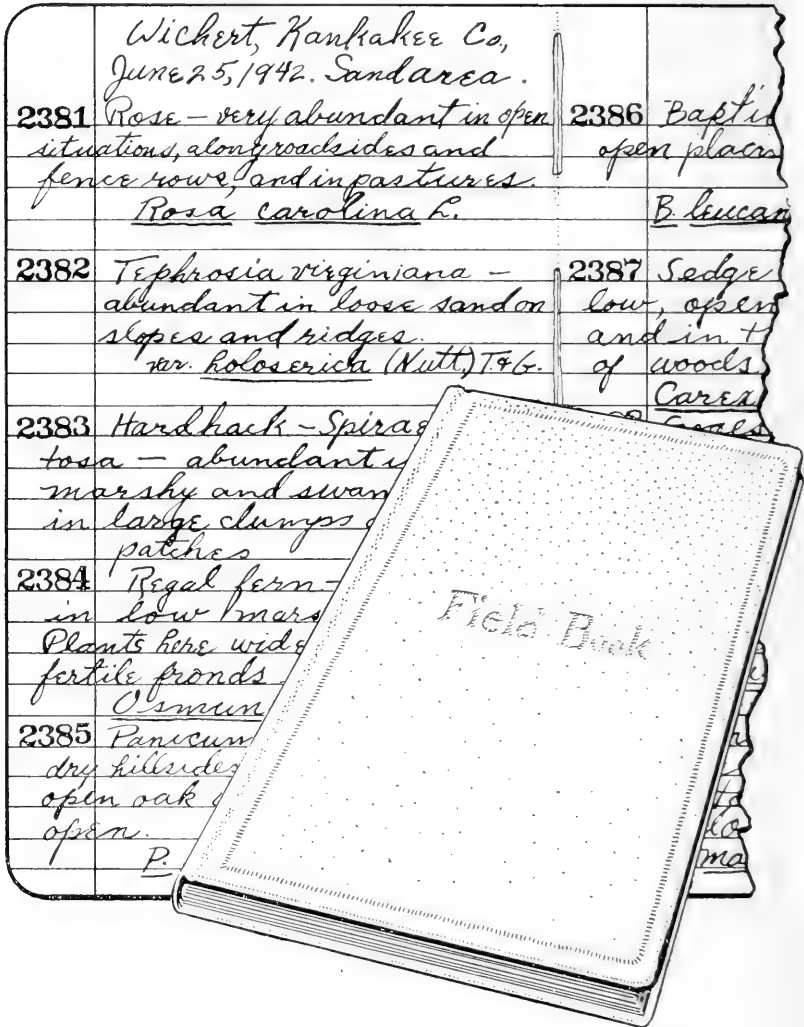 Wichert, Kankakee Co.,
June 25, 1942. Sand area.
2381 Rose – very abundant in open
situations, along roadsides and
fence rows, and in pastures.
Rosa carolina L.
2382 Tephrosia virginiana –
abundant in loose sand on
slopes and ridges.
var. holosericia (Nutt.) T. & G.
2383 Hardhack – Spirae
tosa – abundant i
marshy and swam
in large clumps
patches
2384 Regal fern –
in low mars
Plants here wide
fertile fronds
Osmun
2385 Panicum
dry hillsides
open oak
open.
P.
2386 Bapti
open places
B. leucan
2387 Sedge
low, open
and in t
of woods.
Carex
Field Book
ma